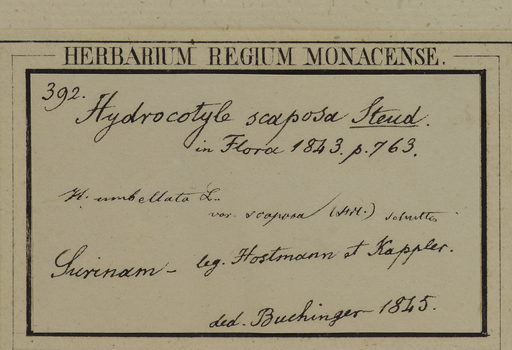 HERBARIUM REGIUM MONACENSE.
392.
Hydrocotyle scaposa Steud.
in Flora 1843. p. 763.
H. umbellata L.
var. scaposa
Surinam - leg. Hostmann et Kappler.
ded. Buchinger 1845.